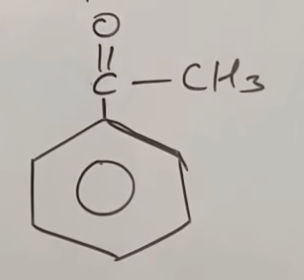 O
C — CH3